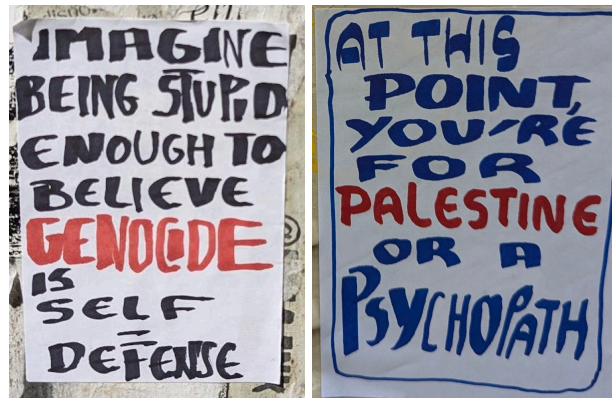 IMAGINE
BEING STUPID
ENOUGH TO
BELIEVE
GENOCIDE
IS
SELF
-
DEFENSE
AT THIS
POINT,
YOU'RE
FOR
PALESTINE
OR A
PSYCHOPATH